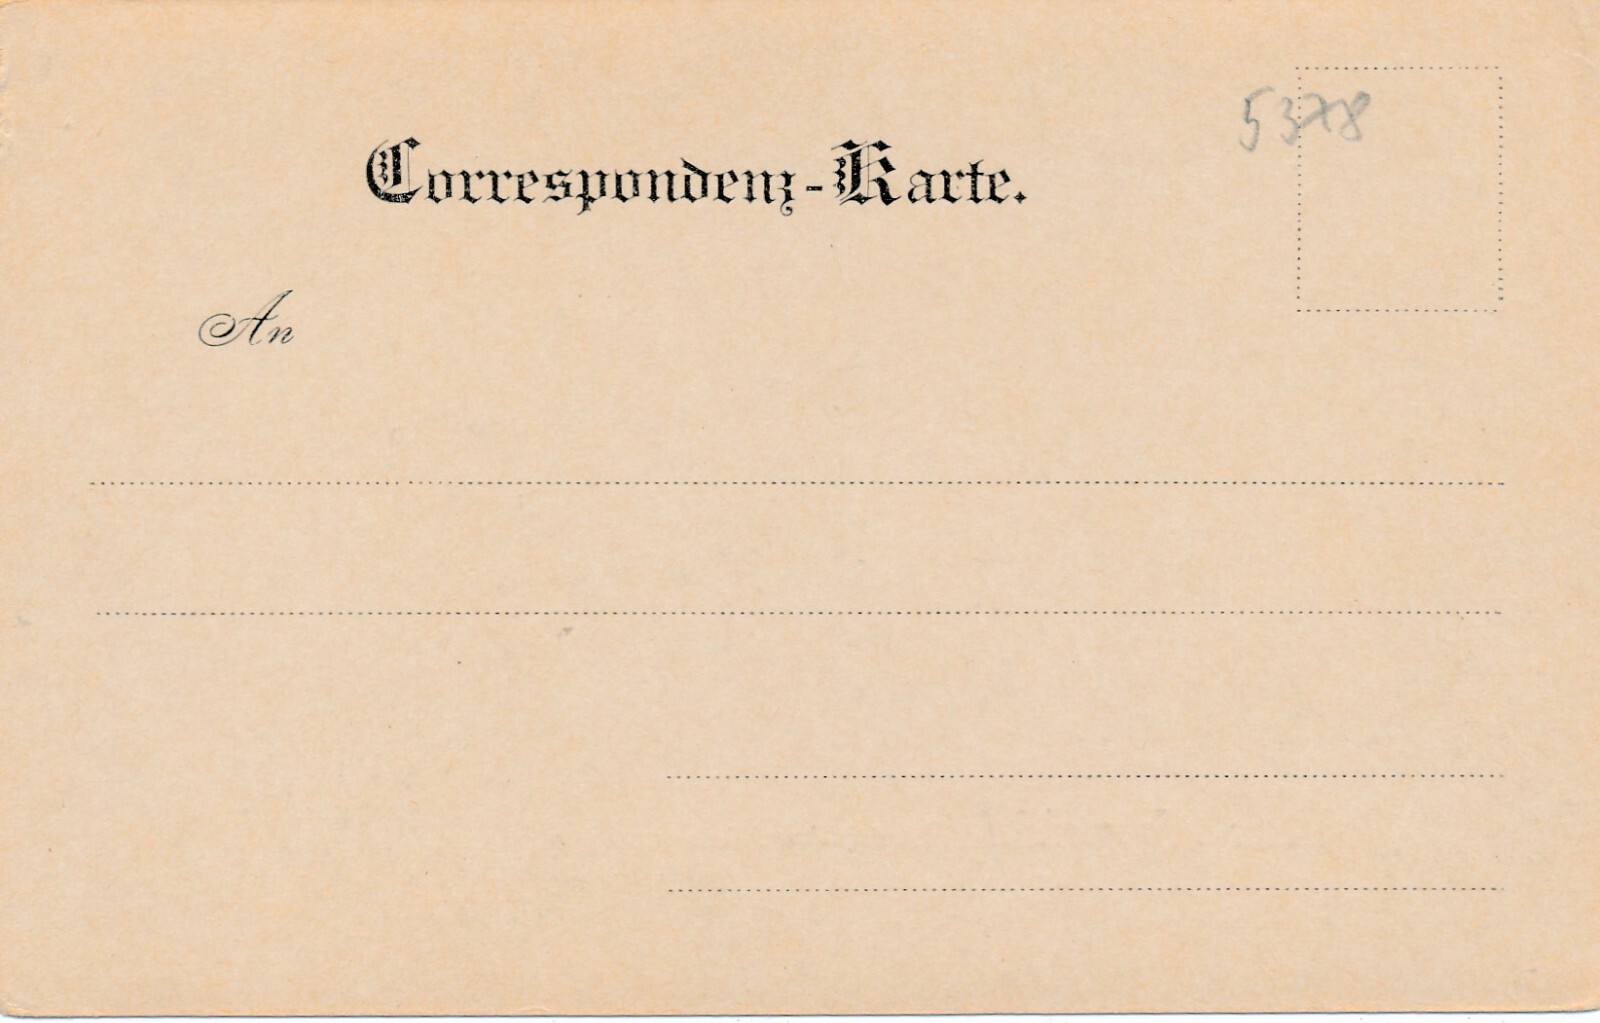 5378
Correspondenz-Karte.
An